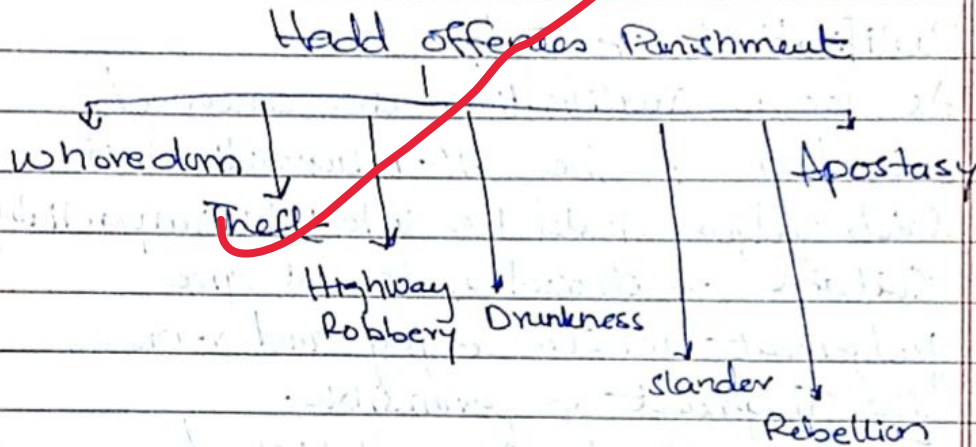 Hadd offences Punishment
Whoredom
Theft
Highway
Robbery
Drunkness
slander
Rebellion
Apostasy